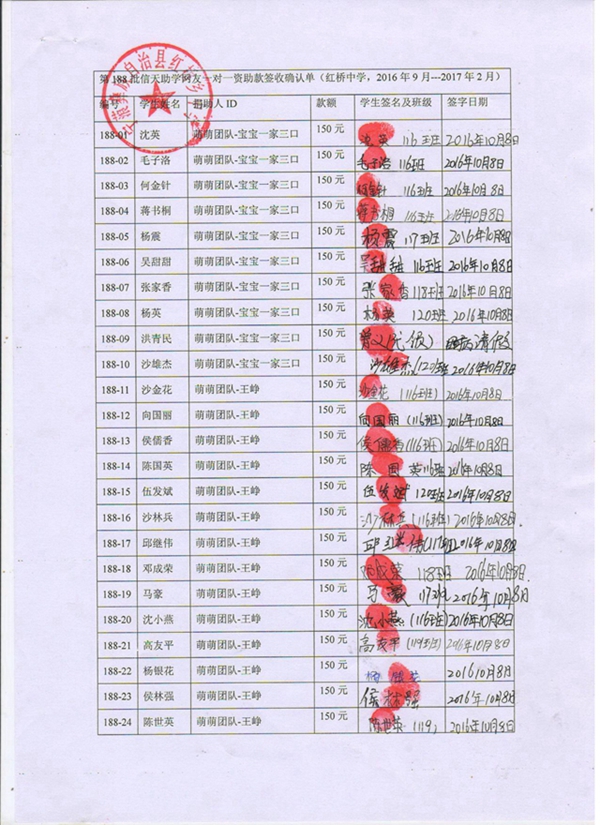 第188批信天助学网友一对一资助款签收确认单（红桥中学，2016年9月---2017年2月）
编号 学生姓名 捐助人ID 款额 学生签名及班级 签字日期
188-01 沈英 萌萌团队-宝宝一家三口 150元 沈英 116班 2016年10月8日
188-02 毛子洛 萌萌团队-宝宝一家三口 150元 毛子洛 116班 2016年10月8日
188-03 何金针 萌萌团队-宝宝一家三口 150元 何金针 116班 2016年10月8日
188-04 蒋书桐 萌萌团队-宝宝一家三口 150元 蒋书桐 116班 2016年10月8日
188-05 杨震 萌萌团队-宝宝一家三口 150元 杨震 117班 2016年10月8日
188-06 吴甜甜 萌萌团队-宝宝一家三口 150元 吴甜甜 116班 2016年10月8日
188-07 张家香 萌萌团队-宝宝一家三口 150元 张家香 118班 2016年10月8日
188-08 杨英 萌萌团队-宝宝一家三口 150元 杨英 120班 2016年10月8日
188-09 洪青民 萌萌团队-宝宝一家三口 150元
188-10 沙雄杰 萌萌团队-宝宝一家三口 150元 沙雄杰 120班 2016年10月8日
188-11 沙金花 萌萌团队-王峥 150元 沙金花 (116班) 2016年10月8日
188-12 向国丽 萌萌团队-王峥 150元 向国丽 (116班) 2016年10月8日
188-13 侯儒香 萌萌团队-王峥 150元 侯儒香 (116班) 2016年10月8日
188-14 陈国英 萌萌团队-王峥 150元 陈国英 116班 2016年10月8日
188-15 伍发斌 萌萌团队-王峥 150元 伍发斌 120班 2016年10月8日
188-16 沙林兵 萌萌团队-王峥 150元 沙林兵 (116班) 2016年10月8日
188-17 邱继伟 萌萌团队-王峥 150元 邱 伟 2016年10月8日
188-18 邓成荣 萌萌团队-王峥 150元 邓成荣 118班 2016年10月8日
188-19 马豪 萌萌团队-王峥 150元 马豪 117班 2016年10月8日
188-20 沈小燕 萌萌团队-王峥 150元 沈小燕 (116班) 2016年10月8日
188-21 高友平 萌萌团队-王峥 150元 高友平 (119班) 2016年10月8日
188-22 杨银花 萌萌团队-王峥 150元 杨银花 2016 10月8日
188-23 侯林强 萌萌团队-王峥 150元 侯林强 2016年10月8日
188-24 陈世英 萌萌团队-王峥 150元 陈世英 (119) 2016年10月8日